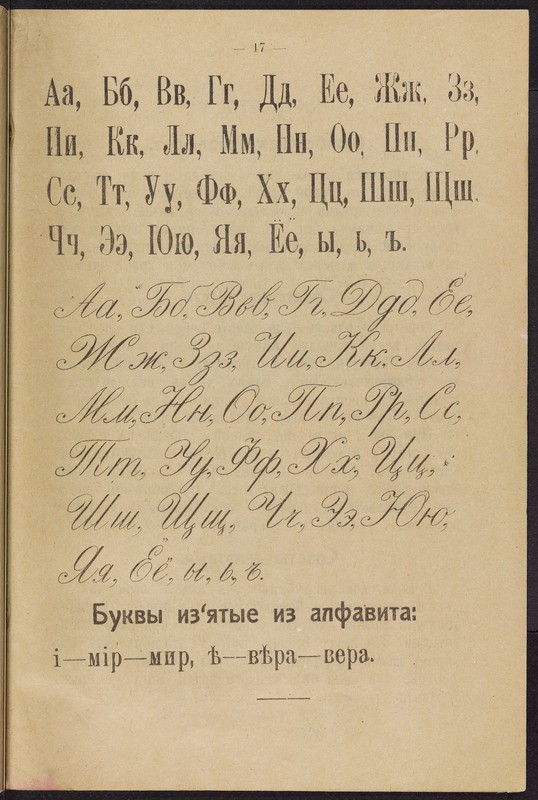 — 17 —
Аа, Бб, Вв, Гг, Дд, Ее, Жж, Зз,
Ии, Кк, Лл, Мм, Нн, Оо, Пп, Рр,
Сс, Тт, Уу, Фф, Хх, Цц, Шш, Щщ,
Чч, Ээ, Юю, Яя, Ёё, ы, ь, ъ.
Аа, Бб, Ввв, Гг, Ддд, Ее,
Жж, Ззз, Ии, Кк, Лл,
Мм, Нн, Оо, Пп, Рр, Сс,
Тт, Уу, Фф, Хх, Цц,
Шш, Щщ, Чч, Ээ, Юю,
Яя, Ёё, ы, ь, ъ.
Буквы из‘ятые из алфавита:
і—мір—мир, ѣ—вѣра—вера.